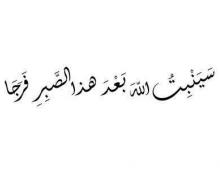 سَيَنْبِتُ اللّهَ بَعْدَ هذا الصَّبِرِ فَرَجَا